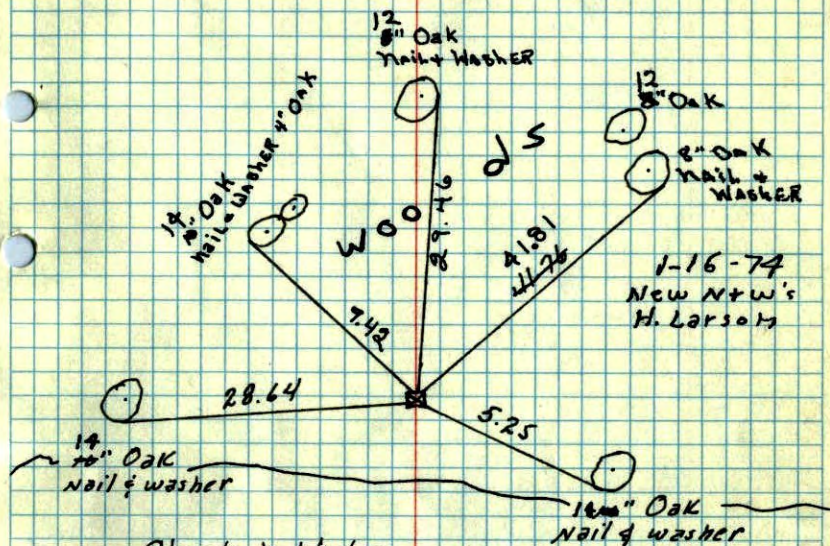 12
8" Oak
Nail + Washer
12
8" Oak
8" Oak
Nail +
Washer
14
8" Oak
Nail & Washer 4" Oak
Woods
29.46
41.81
41.76
7.42
1-16-74
New N+W's
H. Larson
28.64
5.25
14
10" Oak
Nail & washer
14" Oak
Nail & washer